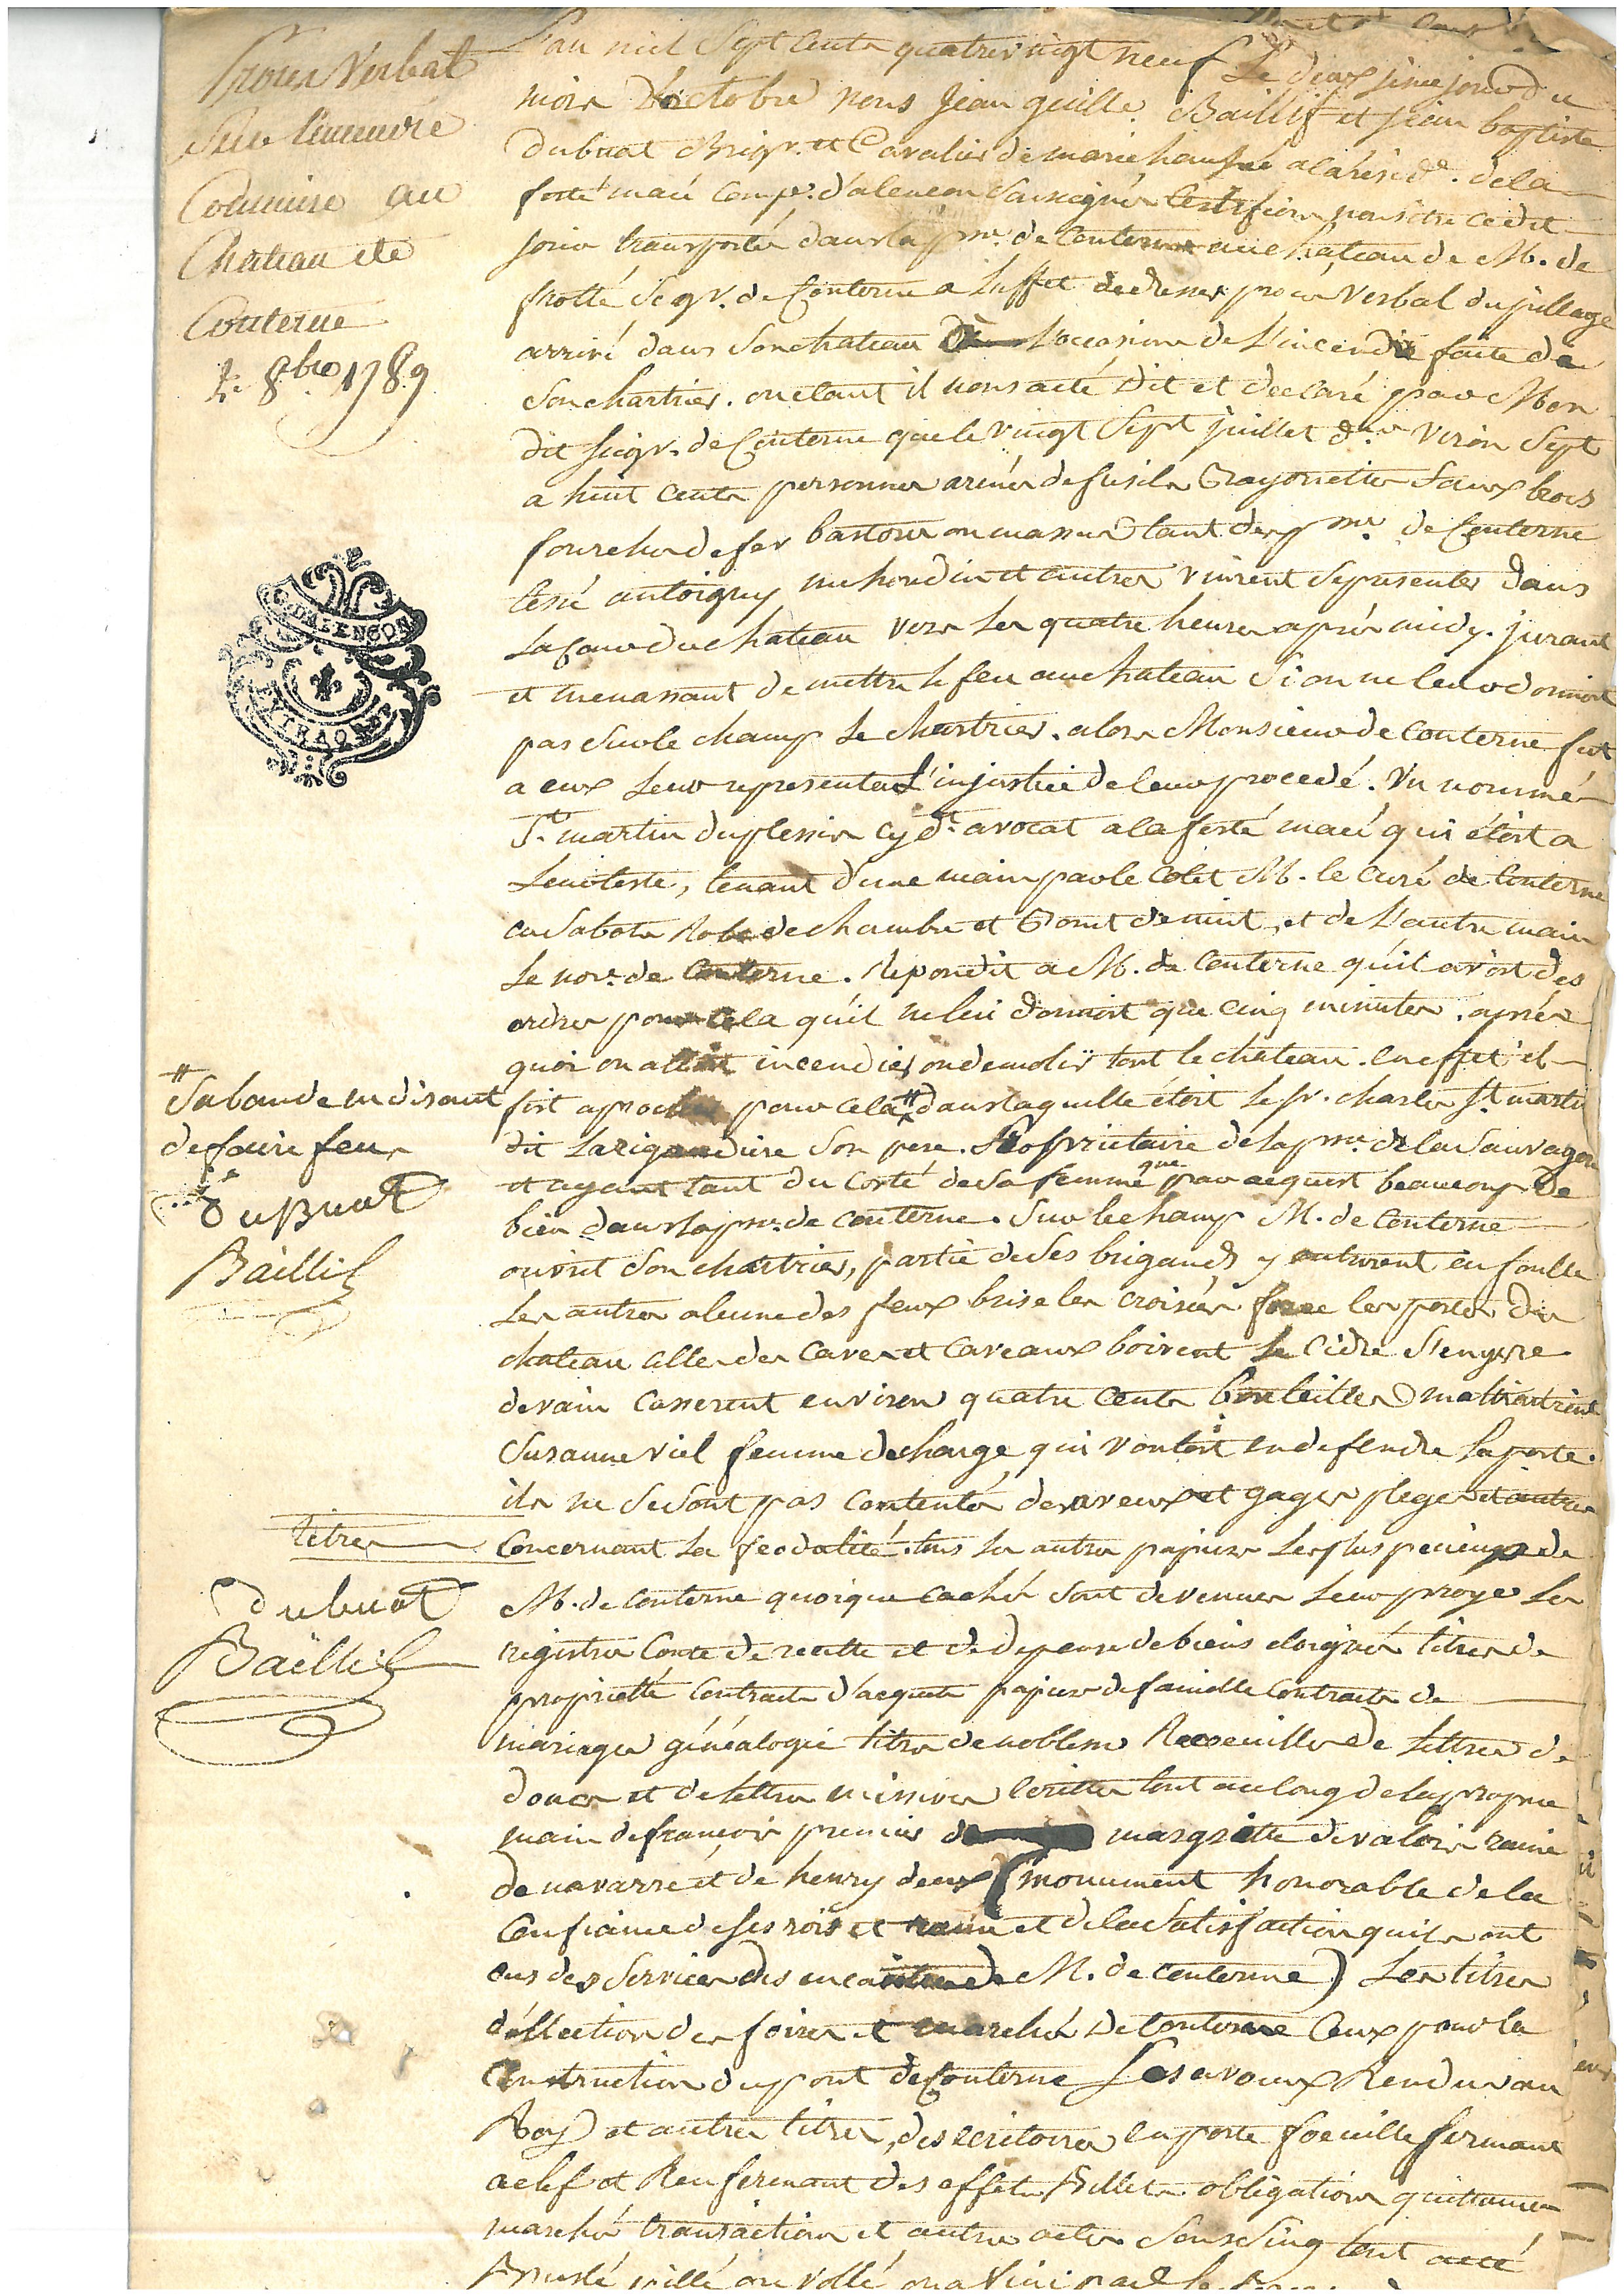 Proces Verbal
Sur l'incendie
Commise au
Chateau de
Couterne
2. 8bre 1789
G. D'ALENCON
EXTRAORD
L'an mil Sept Cents quatrevingt neuf Le deuxsieme jour du
mois D'octobre nous Jean guille. Baillif et jean baptiste
Dubuat Brigr. et Cavalier de marechaussée a la résidce. de la
ferté macé Compe. d'alencon Soussignés Certifions nous être cedit
jour transportés dans la psse. de Couterne au chateau de M. de
frotté Segr. de Couterne a l'effet de dresser proces Verbal du pillage
arrivé dans Son chateau L'occasion de L'incendie faite de
Son chartrier. ou etant il nous a eté Dit et declaré par Mon
dit seigr. de Couterne que le vingt Sept juillet dr. viron Sept
a huit cents personnes armés de fusils Bayonettes Faux brocs
fourches de fer bastons ou massues tant des psses. de Couterne
tessé antoigny mehoudin et autres vinrent Se presenter Dans
La Cour du chateau vers Les quatre heures après midy. jurant
et menassant de mettre le feu au chateau Si on ne leur donnoit
pas Sur le champ Le chartrier. alors Monsieur de Couterne fut
a eux Leur representer L'injustice de leur procedé. Un nommé
St. martin duplessis cy dt. avocat a la ferté macé qui étoit a
Leur teste, tenant d'une main par le Colet M. le Curé de Couterne
en Sabots Robe de chambre et Bonet de nuit, et de L'autre main
Le nore. de Couterne. Repondit a M. de Couterne qu'il avoit des
ordres pour cela qu'il ne lui donnoit que cinq minutes. après
quoi on alloit incendier ou demolir tout le chateau. en effet il
fist aprocher pour cela # dans laquelle étoit Le sr. charles St. martin
# Sa bande en disant
de faire feu
Dubuat
Baillif
dit Larigaudiere Son pere. Proprietaire de la psse. de la Sauvagere
et ayant tant du Costé de Sa femme que par acquest beaucoup De
bien dans la psse. de Couterne. Sur le champ M. de Couterne
ouvrit Son chartrier, partie de Ses brigands y entrerent en foulle
Les autres alume des feux brise les croisées force les portes du
chateau celles des Caves et Caveaux boivent Le Cidre S'enyvre
de vain Casserent environ quatre Cents bouteilles maltraitrent
Susanne viel femme de charge qui vouloit en defendre La porte.
ils ne Se Sont pas Contentés des aveux et gages pleges et autres
Titres
Concernant La feodalité. tous Les autres papiers Les plus precieux de
Dubuat
Baillif
M. de Couterne quoique cachés Sont devenues Leur proye Les
registres Conte de recette et de depense de biens eloignés titres de
proprietté Contrats d'acquets papiers de famille Contrats de
mariages généalogie titres de noblesse Receuilles de Lettres de
dons et de Lettres missives Ecrittes tout au long de la propre
main de francois premier de margritte de valois raine
de navarre et de henry deux (monument honorable de la
Confiance de ses rois et raine et de la Satisfaction qu'ils ont
eus des Services des encestres de M. de Couterne) Les titres
d'éllection des foires et marchés de Couterne Ceux pour la
Construction du pont de Couterne Les aveux Rendus au
Roy et autres titres, des ecritoires en porte foeuille fermant
a clef et Renfermant des effets Billets obligations quittances
marchés transactions et autres actes Sous Sing tout a eté
Bruslé pillé ou vollé